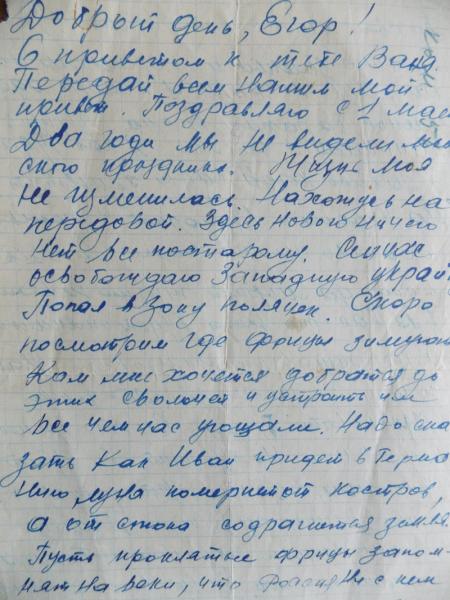 Добрый день, Егор!
С приветом к тебе Ваня.
Передай всем нашим мой
привет. Поздравляю с 1 мая
Два года мы не видели мы
ского праздника. Жизнь моя
не изменилась. Нахожусь на
передовой. Здесь нового ничего
нет все постарому. Сейчас
освобождаю Западную Украи
Попал в зону полячек. Скоро
посмотрим где фрицы зимуют
Как мне хочется добратся до
этих сволочей и устроить им
все чем нас угощали. Надо ска
зать Как Иван придет в Герма
нию луна померкнет от костров,
а от стона содрагнется земля.
Пусть проклятые фрицы запом-
нят на веки, что с нем